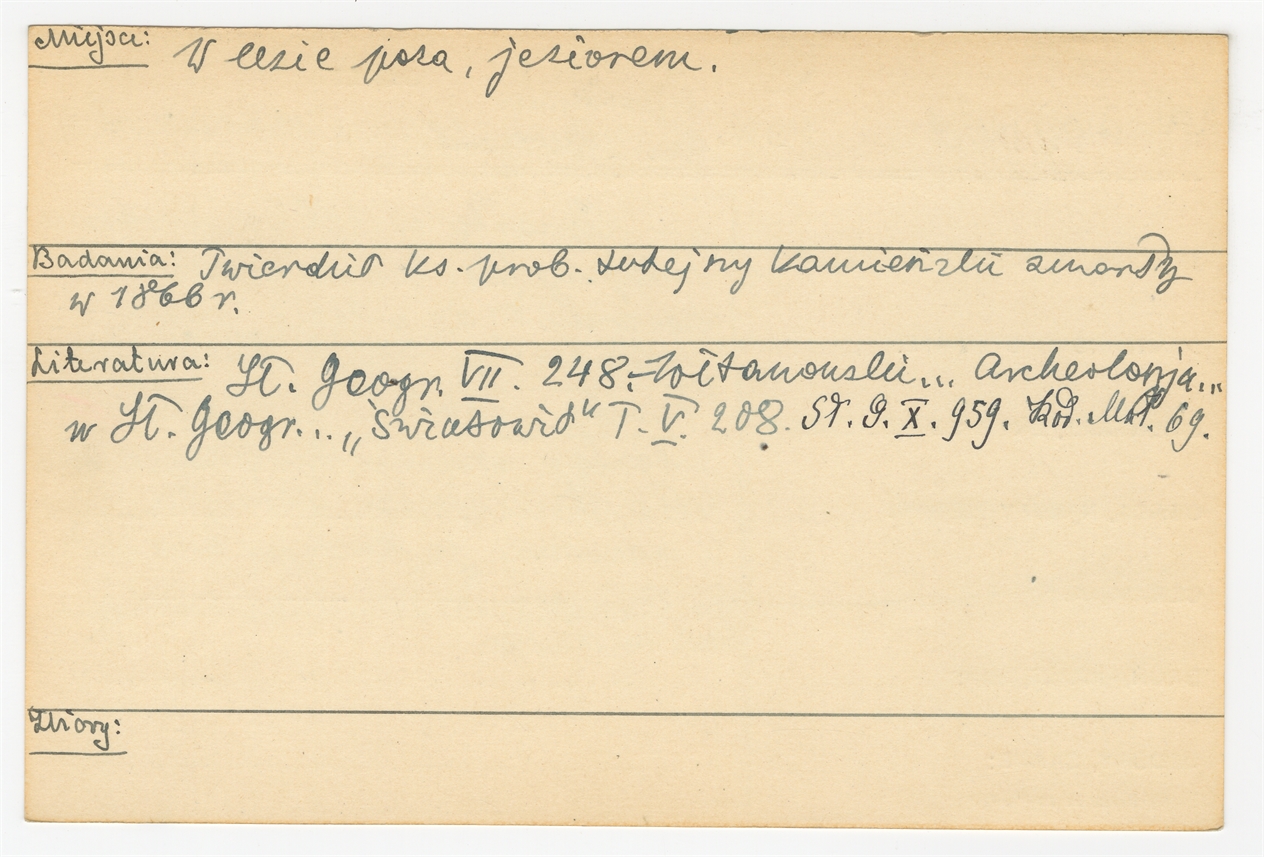 Miejsce: W lesie poza, jeziorem.
Badania: Twierdził ks. prob. tutejszy Kamieński zmarły
w 1866 r.
Literatura: Sł. Geogr. VII. 248. Archeologja...
w Sł. Geogr... „Światowid" T. V. 208. Sł. G. X. 959. Kod. Młp. 69.
Zbiory: